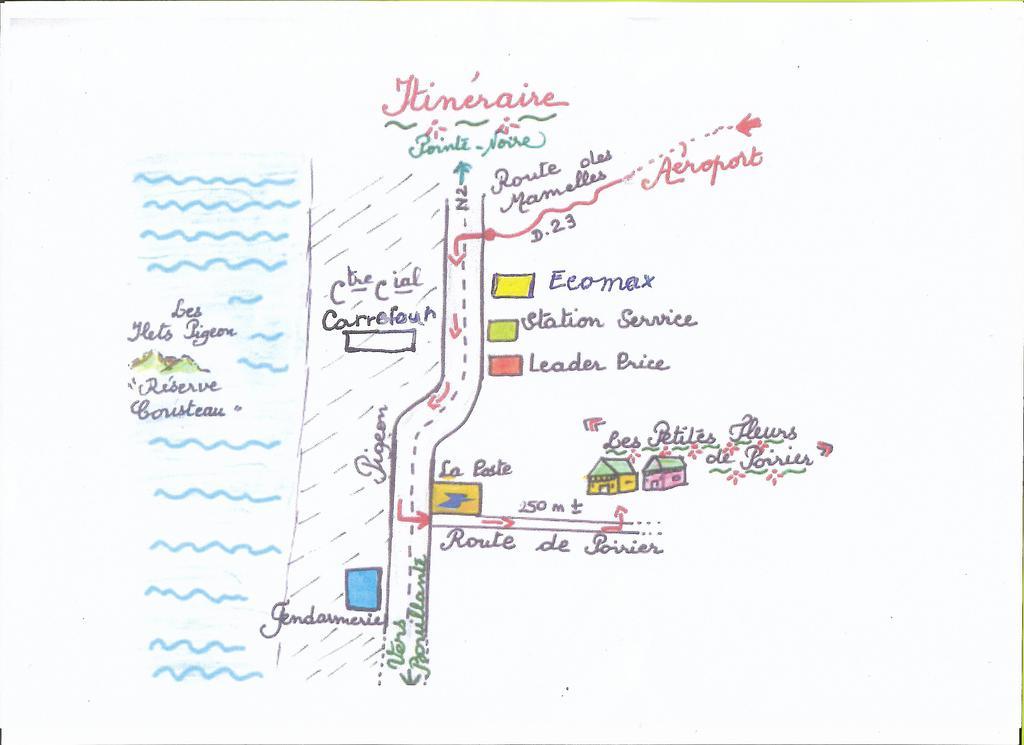 Itinéraire
Pointe-Noire
N2
Route des
Mamelles
D.23
Aéroport
Ctre Cial
Carrefour
Ecomax
Station Service
Leader Price
Les
Ilets Pigeon
"Réserve
Cousteau"
Pigeon
La Poste
"Les Petites Fleurs
de Poirier"
250 m ±
Route de Poirier
Gendarmerie
Vers
Bouillante